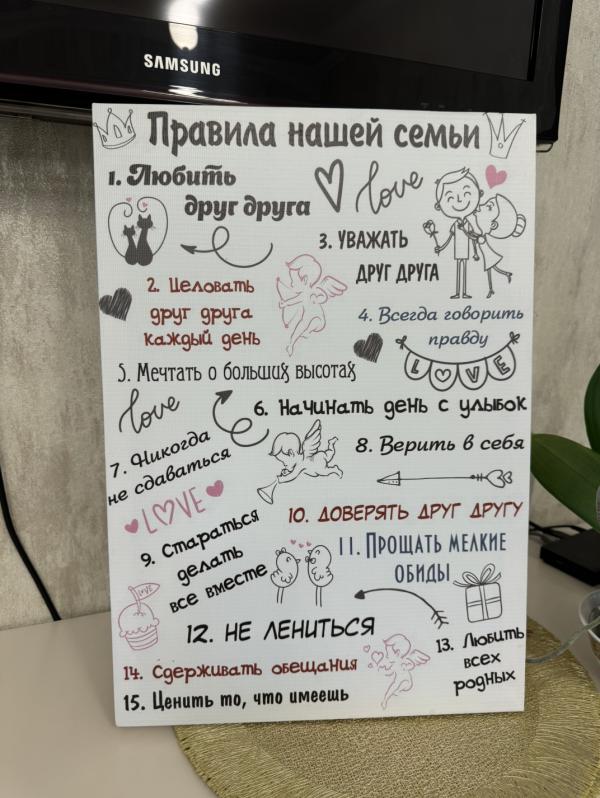 SAMSUNG
Правила нашей семьи
1. Любить
друг друга
love
3. УВАЖАТЬ
ДРУГ ДРУГА
2. Целовать
друг друга
каждый день
4. Всегда говорить
правду
LOVE
5. Мечтать о больших высотах
love
6. Начинать день с улыбок
7. Никогда
не сдаваться
8. Верить в себя
LOVE
10. ДОВЕРЯТЬ ДРУГ ДРУГУ
9. Стараться
делать
все вместе
11. ПРОЩАТЬ МЕЛКИЕ
ОБИДЫ
LOVE
12. НЕ ЛЕНИТЬСЯ
13. Любить
всех
родных
14. Сдерживать обещания
15. Ценить то, что имеешь